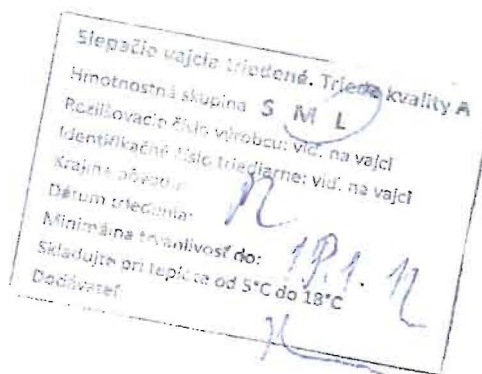 Slepačie vajcia triedené. Trieda kvality A
Hmotnostná skupina S M L
Rozlišovacie číslo výrobcu: viď. na vajci
Identifikačné číslo triediarne: viď. na vajci
Krajina pôvodu:
Dátum triedenia:
Minimálna trvanlivosť do: 19.1.
Skladujte pri teplote od 5°C do 18°C
Dodávateľ: